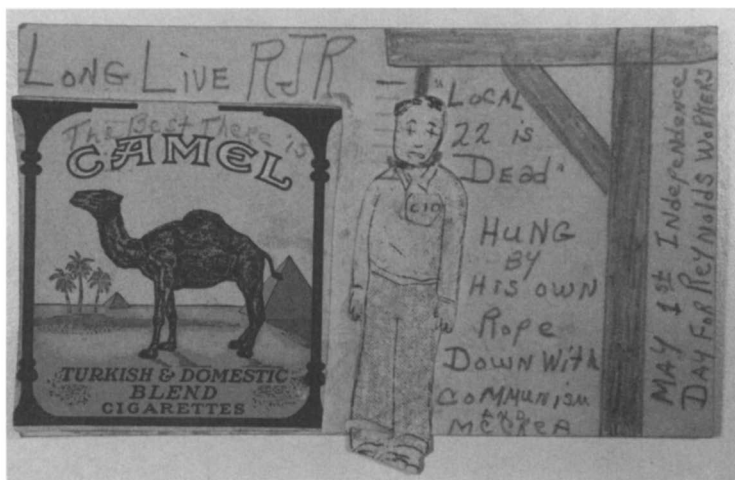 LONG LIVE RJR
The Best There is
CAMEL
TURKISH & DOMESTIC
BLEND
CIGARETTES
CIO
"LOCAL
22 is
Dead"
HUNG
BY
HIS OWN
Rope
DOWN WITH
COMMUNISM
AND
MCCREA
MAY 1st INDEPENDENCE
DAY FOR REYNOLDS WORKERS